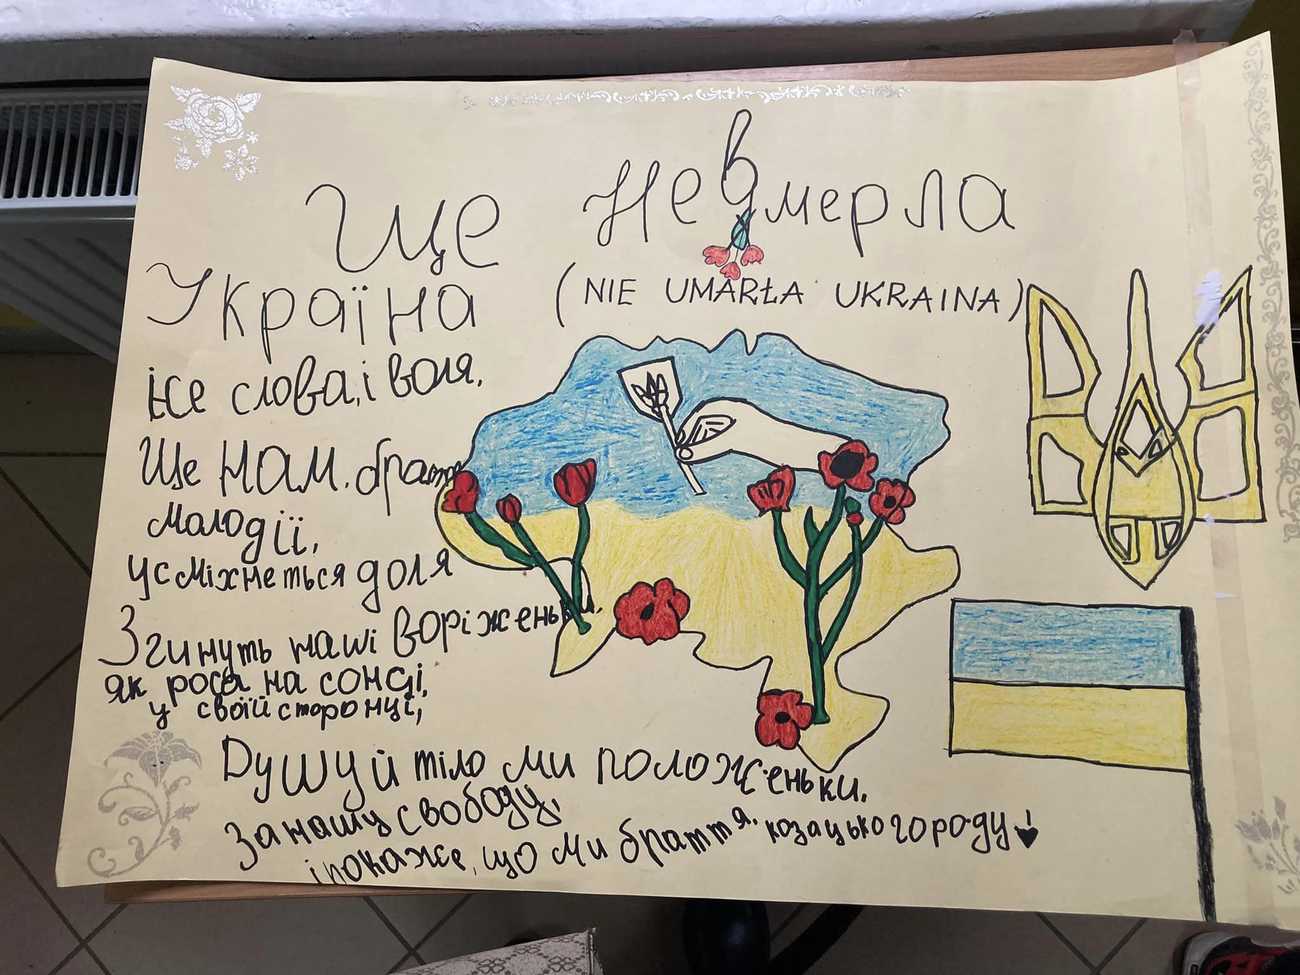 Ще не вмерла
Україна
(NIE UMARŁA UKRAINA)
ісе слова, і воля,
Ще нам, браття
молодії,
усміхнеться доля
Згинуть наші воріженьки.
як роса на сонці,
у своїй сторонці,
Душу й тіло ми положеньки.
За нашу свободу,
і покаже, що ми браття, козацького городу!